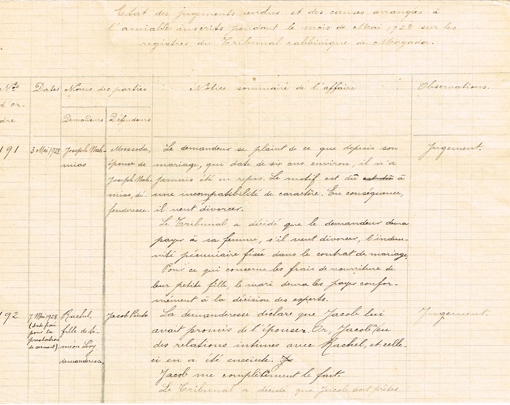 Etat des jugements rendus et des causes arrangées à
l'amiable inscrits pendant le mois de Mai 1928 sur les
registres du Tribunal rabbinique de Mogador.
Nos
d'or
dre
Dates
Noms des parties
Demandeurs
Défendeurs
Notice sommaire de l'affaire
Observations.
191
3 Mai 1928
Joseph
mias
Messoda,
épouse de
Joseph
mias, dé
fenderesse.
Le demandeur se plaint de ce que depuis son
mariage, qui date de six ans environ, il n'a
jamais été en repos. Le motif est dû à
une incompatibilité de caractère. En conséquence,
il veut divorcer.
Le Tribunal a décidé que le demandeur devra
payer à sa femme, s'il veut divorcer, l'indem
nité pécuniaire fixée dans le contrat de mariage.
Pour ce qui concerne les frais de nourriture de
leur petite fille, le mari devra les payer confor-
mément à la décision des experts.
Jugement.
192
7 Mai 1928
pour la
prestation
de serment)
Rachel,
fille de
demanderesse
Jacob
La demanderesse déclare que Jacob lui
avait promis de l'épouser. Or, Jacob
des relations intimes avec Rachel, et celle-
ci en a été enceinte.
Jacob nie complètement le fait.
Le Tribunal a décidé que Jacob doit prêter
Jugement.